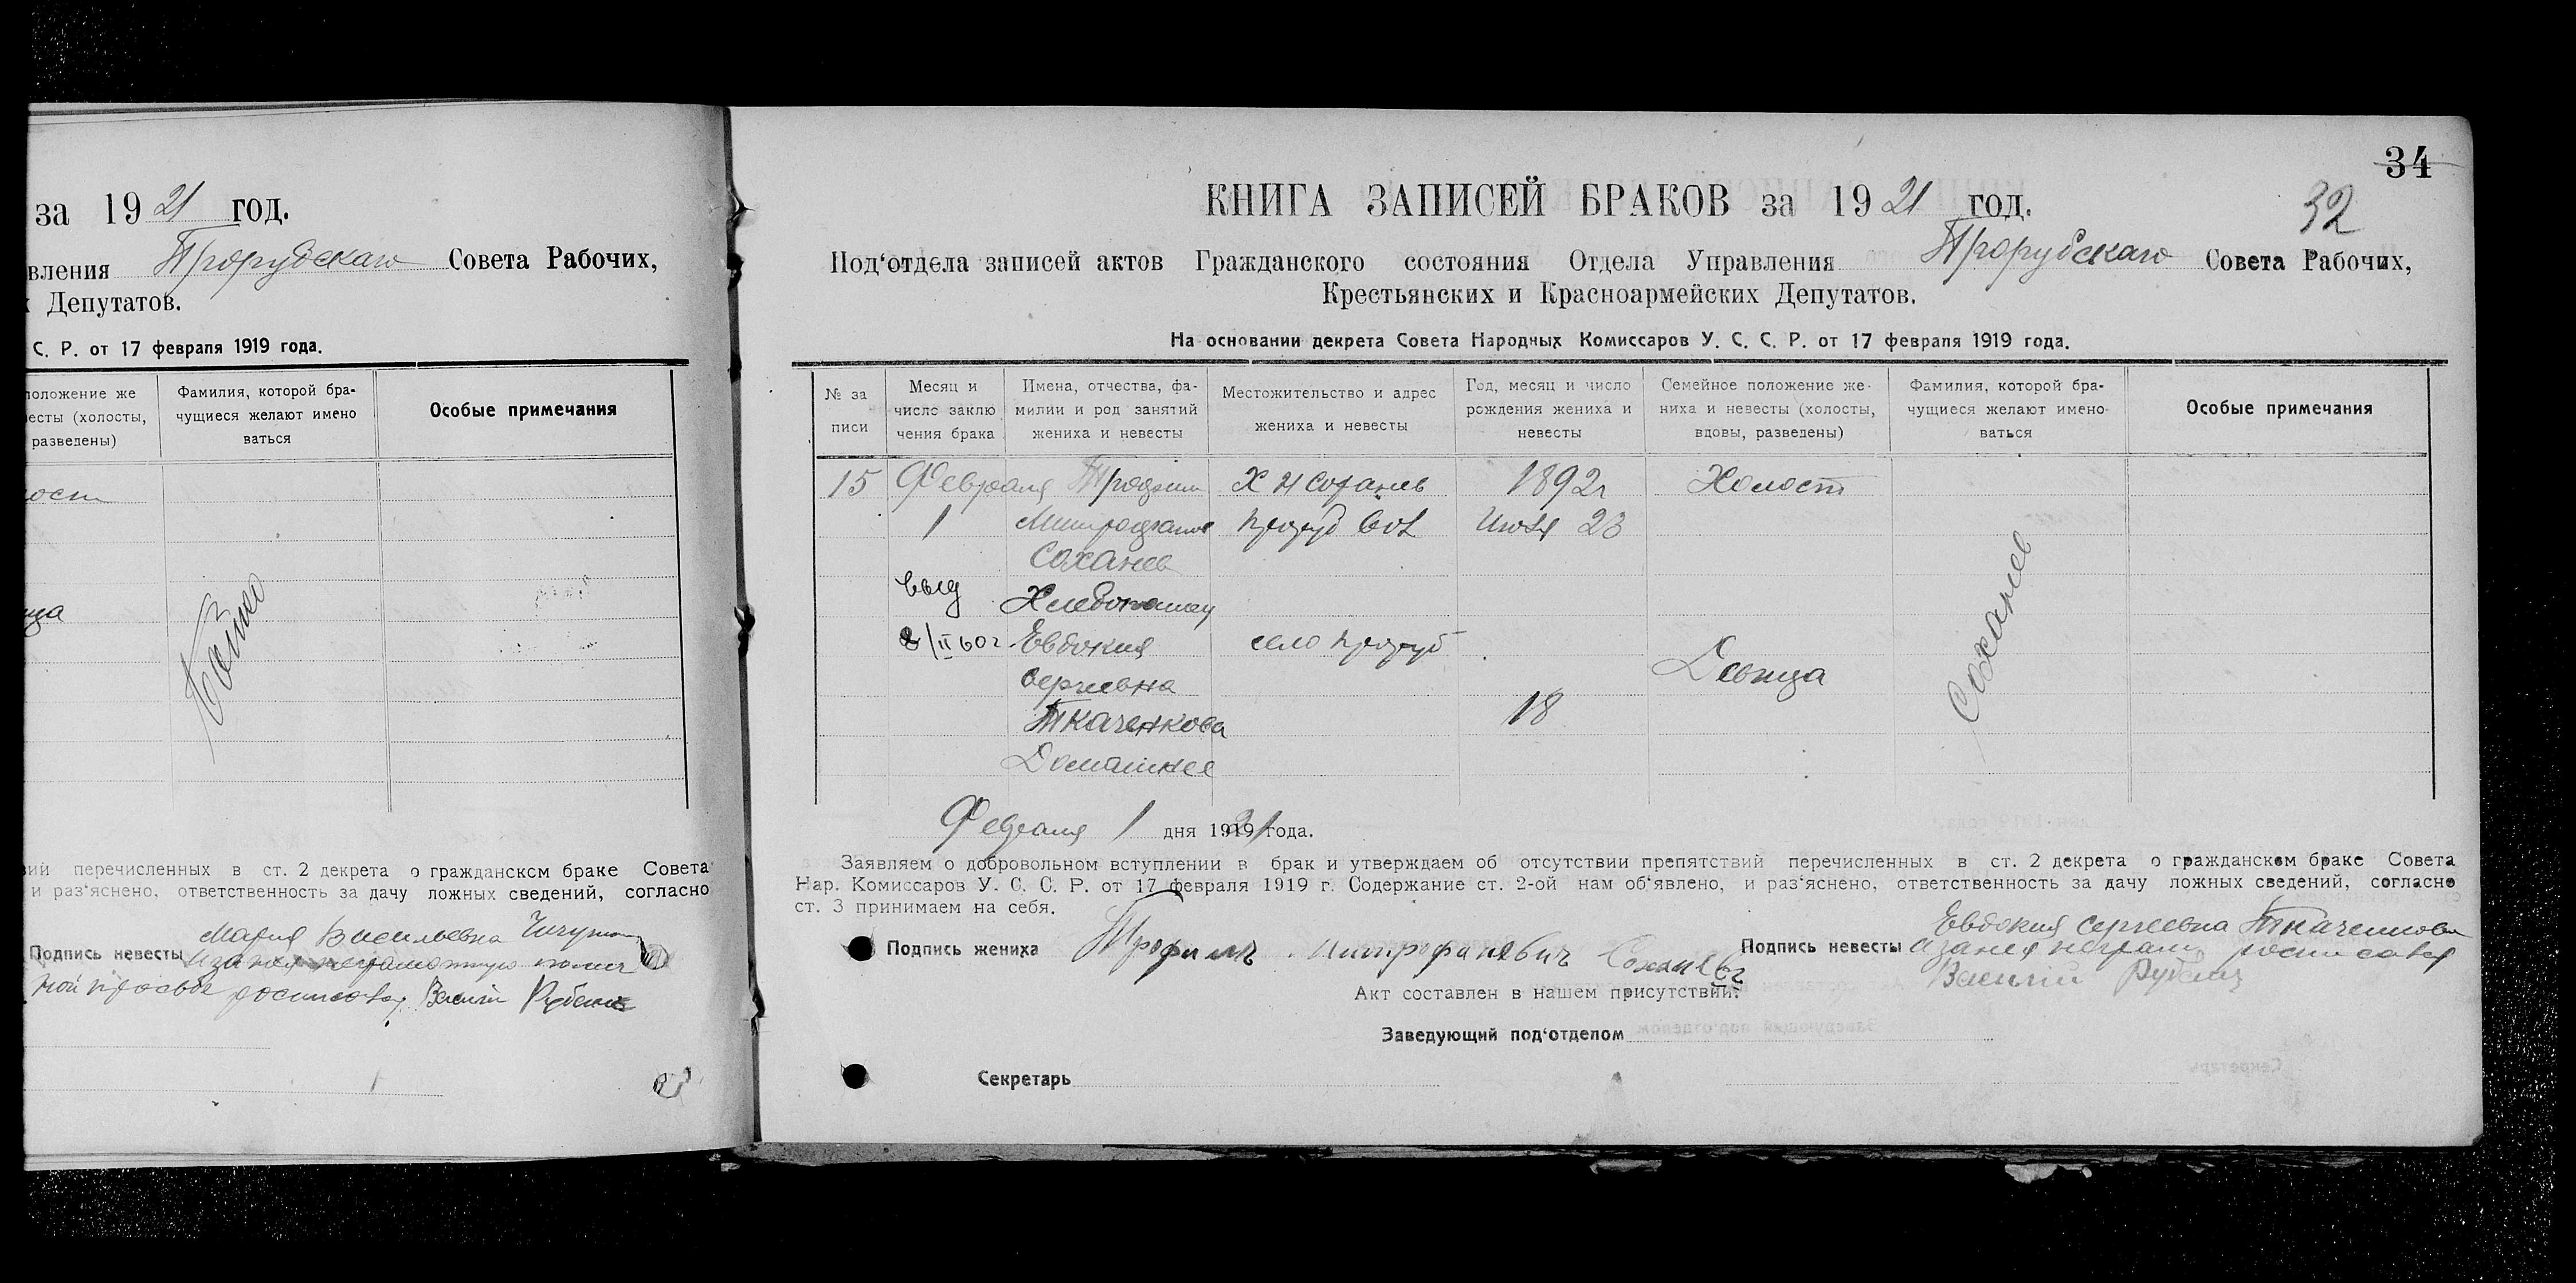 за 1921 год.
вления Прорубскаго Совета Рабочих,
х Депутатов.
С. Р. от 17 февраля 1919 года.
положение же
Фамилия, которой бра-
Особые примечания
весты (холосты,
чущиеся желают имено
разведены)
ваться
ост
ца
ий перечисленных в ст. 2 декрета о гражданском браке Совета
и раз'яснено, ответственность за дачу ложных сведений, согласно
Подпись невесты Мария Васильевна
росписався Василий Рубан
34
32
КНИГА ЗАПИСЕЙ БРАКОВ за 1921 год.
Под'отдела записей актов Гражданского состояния Отдела Управления Прорубскаго Совета Рабочих,
Крестьянских и Красноармейских Депутатов.
На основании декрета Совета Народных Комиссаров У. С. С. Р. от 17 февраля 1919 года.
№ за
писи
Месяц и
число заклю
чения брака
Имена, отчества, фа-
милии и род занятий
жениха и невесты
Местожительство и адрес
жениха и невесты
Год, месяц и число
рождения жениха и
невесты
Семейное положение же-
ниха и невесты (холосты,
вдовы, разведены)
Фамилия, которой бра-
чущиеся желают имено-
ваться
Особые примечания
15 Февраля Трофим 1892г Холост
1 Митрофанов 23
Соханев
выд Хлебопашец
8/II 60г. Евдокия село Проруб
Сергеевна Девица
Ткаченкова 18
Домашнее
Соханев
Февраля 1 дня 1921 года.
Заявляем о добровольном вступлении в брак и утверждаем об отсутствии препятствий перечисленных в ст. 2 декрета о гражданском браке Совета
Нар. Комиссаров У. С. С. Р. от 17 февраля 1919 г. Содержание ст. 2-ой нам об'явлено, и раз'яснено, ответственность за дачу ложных сведений, согласно
ст. 3 принимаем на себя.
Подпись жениха Трофимъ Митрофановичъ Соханевъ
Подпись невесты Евдокия Сергеевна Ткаченкова
а за нея неграм росписався
Василий Рубан
Акт составлен в нашем присутствии:
Заведующий под'отделом
Секретарь